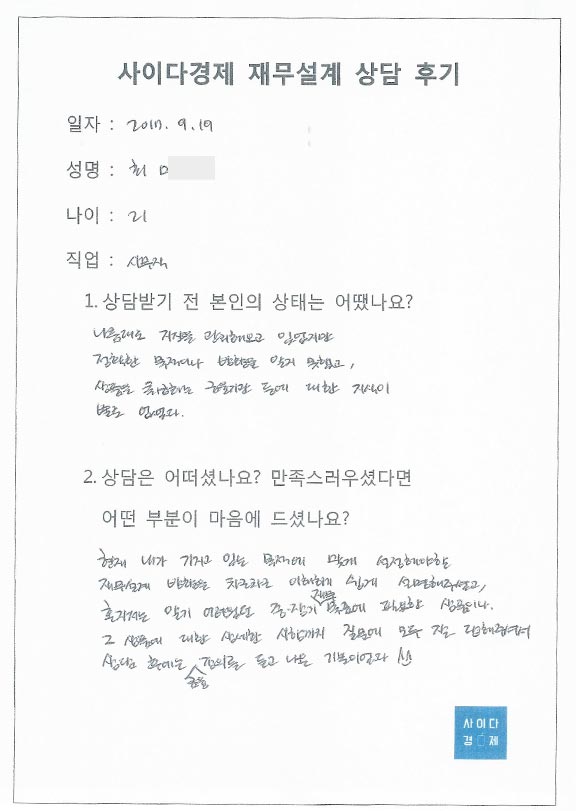 사이다경제 재무설계 상담 후기
일자 : 2017. 9. 19
성명 : 최
나이 : 21
직업 : 사무직
1. 상담받기 전 본인의 상태는 어땠나요?
나름대로 지출을 관리해보고 있었지만
정확한 목적이나 방향을 알지 못했고,
상품을 하는 대한 지식이
별로 없었다.
2. 상담은 어떠셨나요? 만족스러우셨다면
어떤 부분이 마음에 드셨나요?
현재 내가 가지고 있는 목적에 맞게 설정해야할
재무설계 방향을 차근차근 이해하기 쉽게 설명해주셨고,
혼자서는 알기 어려웠던 중·장기 재무 목표에 필요한 상품이나.
그 상품에 대한 상세한 사항까지 질문에 모두 잘 답해주셔서
상담 후에는 좋은 강의를 듣고 나온 기분이었다
사이다
경제